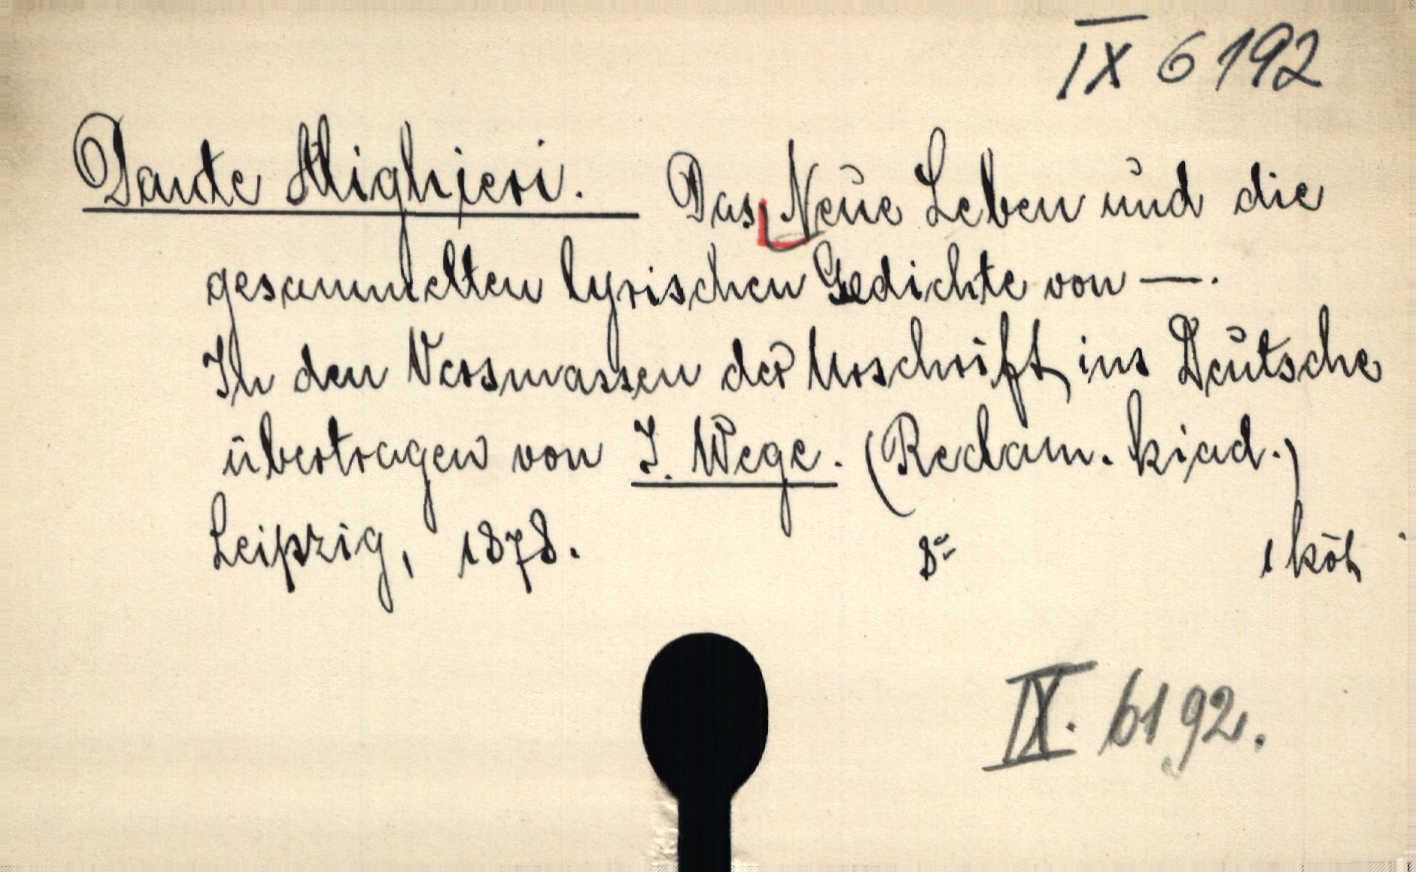 IX 6192
Dante Alighieri. Das Neue Leben und die
gesammelten lyrischen Gedichte von —.
In den Versmassen der Urschrift ins Deutsche
übertragen von J. Wege. (Reclam. kiad.)
Leipzig, 1878. 8° 1 köt.
IX. 6192.